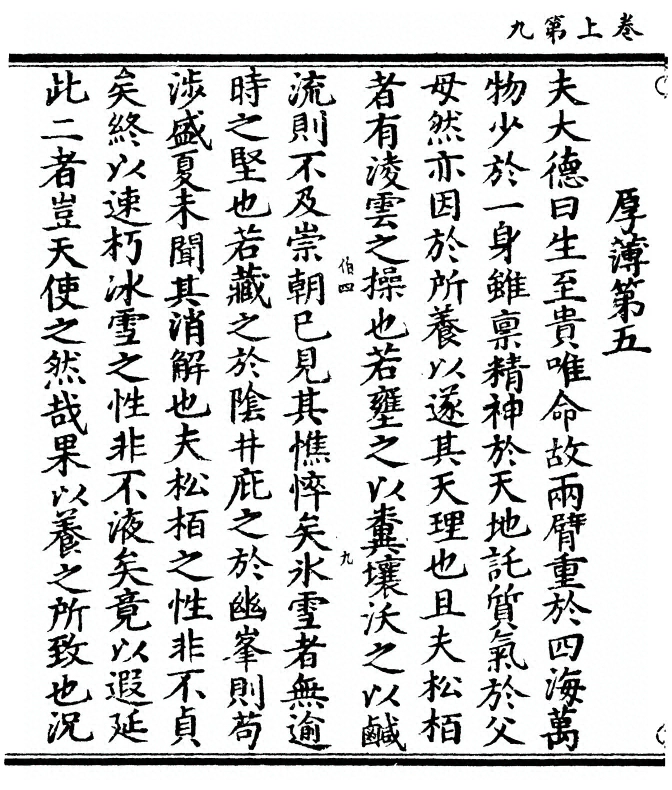 卷上第九
厚薄第五
夫大德曰生至貴唯命故兩臂重於四海萬
物少於一身雖禀精神於天地託質氣於父
母然亦因於所養以遂其天理也且夫松栢
者有淩雲之操也若壅之以糞壤沃之以鹹
流則不及崇朝已見其憔悴矣氷雪者無逾
伯四
九
時之堅也若藏之於陰井庇之於幽峯則苟
涉盛夏未聞其消解也夫松栢之性非不貞
矣終以速朽冰雪之性非不液矣竟以遐延
此二者豈天使之然哉果以養之所致也況